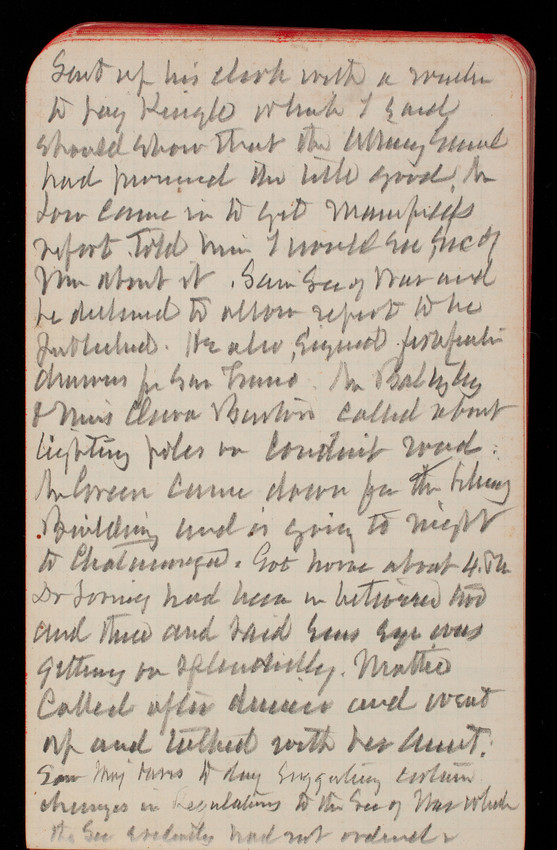 Sent up his clerk with a
to pay Kingle which I said
should show that the Attorney General
had the title good. Mr
Low came in to get Mansfields
report. Told him I would see Sec of
War about it. Saw Sec of War and
he declined to allow report to be
published. He also signed
for San Franco. Mr Baltzley
& Miss Clara Barton called about
lighting poles on Conduit road.
Mr Green came down for the Library
Building and is going to night
to Chatanooga. Got home about 4.
Dr had been in between two
and three and said eye was
getting on splendidly. Mattie
Called after dinner and went
up and talked with her Aunt.
Saw Maj Davis to day suggesting certain
changes in Regulations to the Sec of War which
the Sec evidently had not ordered